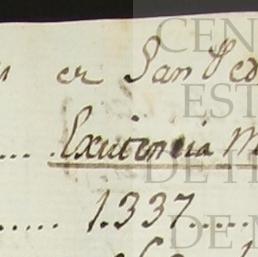 er San Ped
.... Existencia M
..... 1.337.....
CEN
EST
DE H
DE N